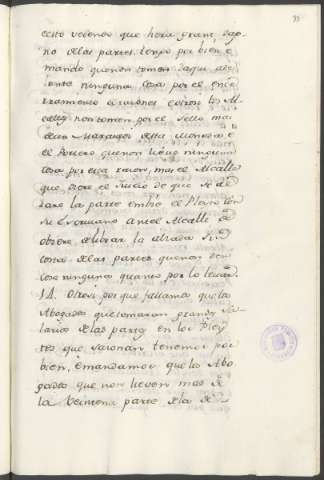 esto veiendo que hera grant dap
no delas partes tengo por bien e
mando quenon tomen daqui ade
lante ninguna cosa por el ence
rramiento e quienes estovieren los Al
caldes non tomen, por el sello mas
delos Maravedis desta moneda e
el Portero que non lieve ninguna
cosa por esta razon, mas el Alcalde
que oyere el Juicio de que se al
zare la parte embie el Pleyto con
su Escrivano antel Alcalde que
oviere de librar la alzada sin
costa delas partes quenon den
cose ninguna quanto por lo levar.
14. Otrosi por que fallamos que los
Abogados que tomaran grandes sa
larios delas partes en los Pley
tos que razonan tenemos por
bien, e mandamos que los Abo
gados que non lieven mas de
la veintena parte dela de-